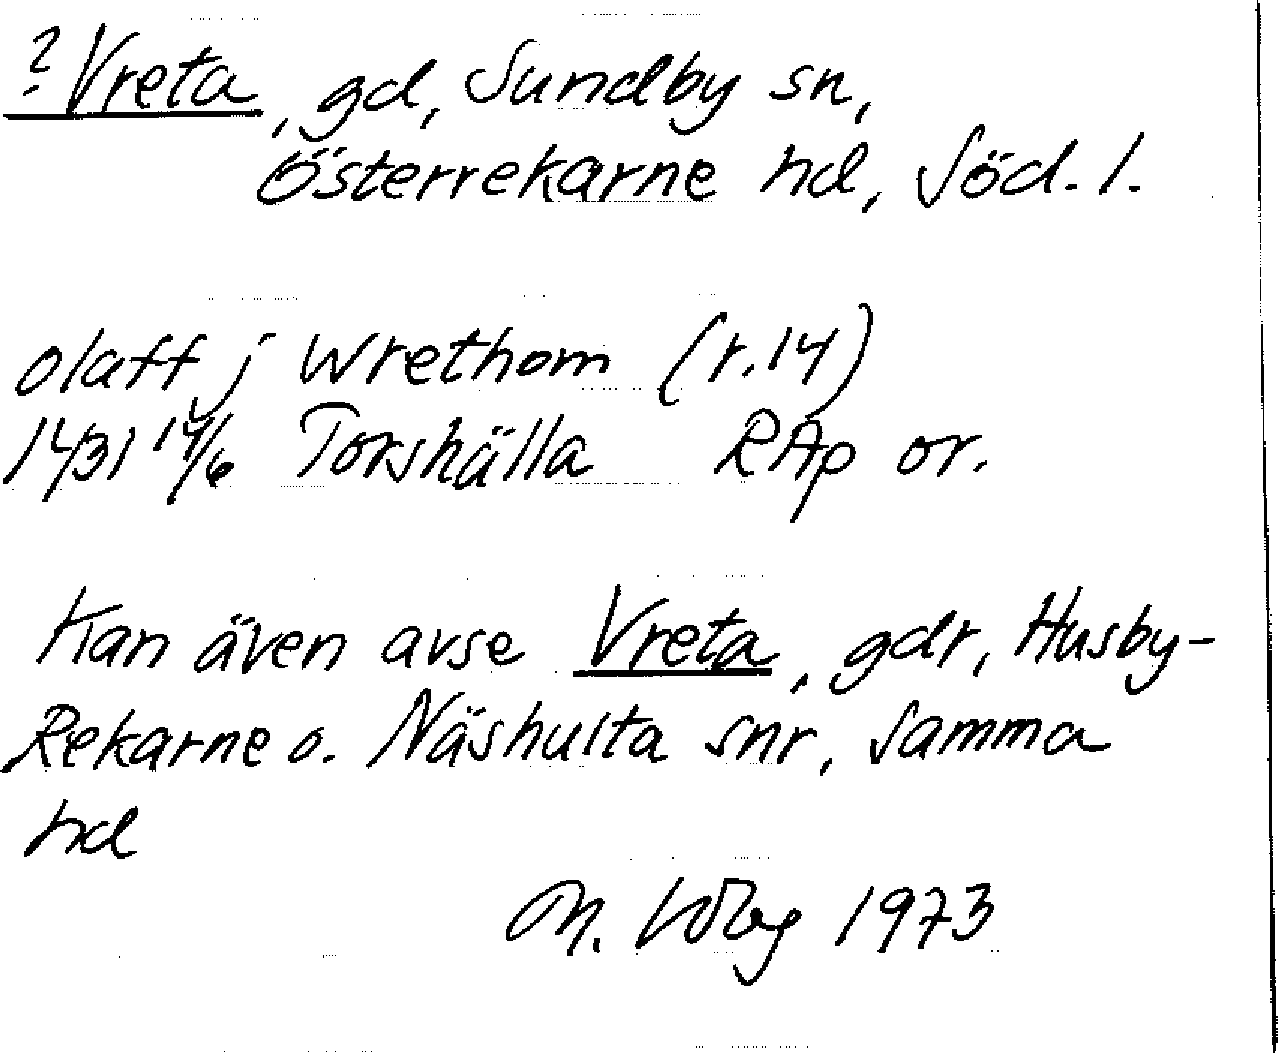 ? Vreta, gd, Sundby sn,
Österrekarne hd, Söd. l.
olaff j Wrethom (r.14)
1431 14/6 Torshälla RAp or.
Kan även avse Vreta, gdr, Husby-
Rekarne o. Näshulta snr, samma
hd
M. 1973